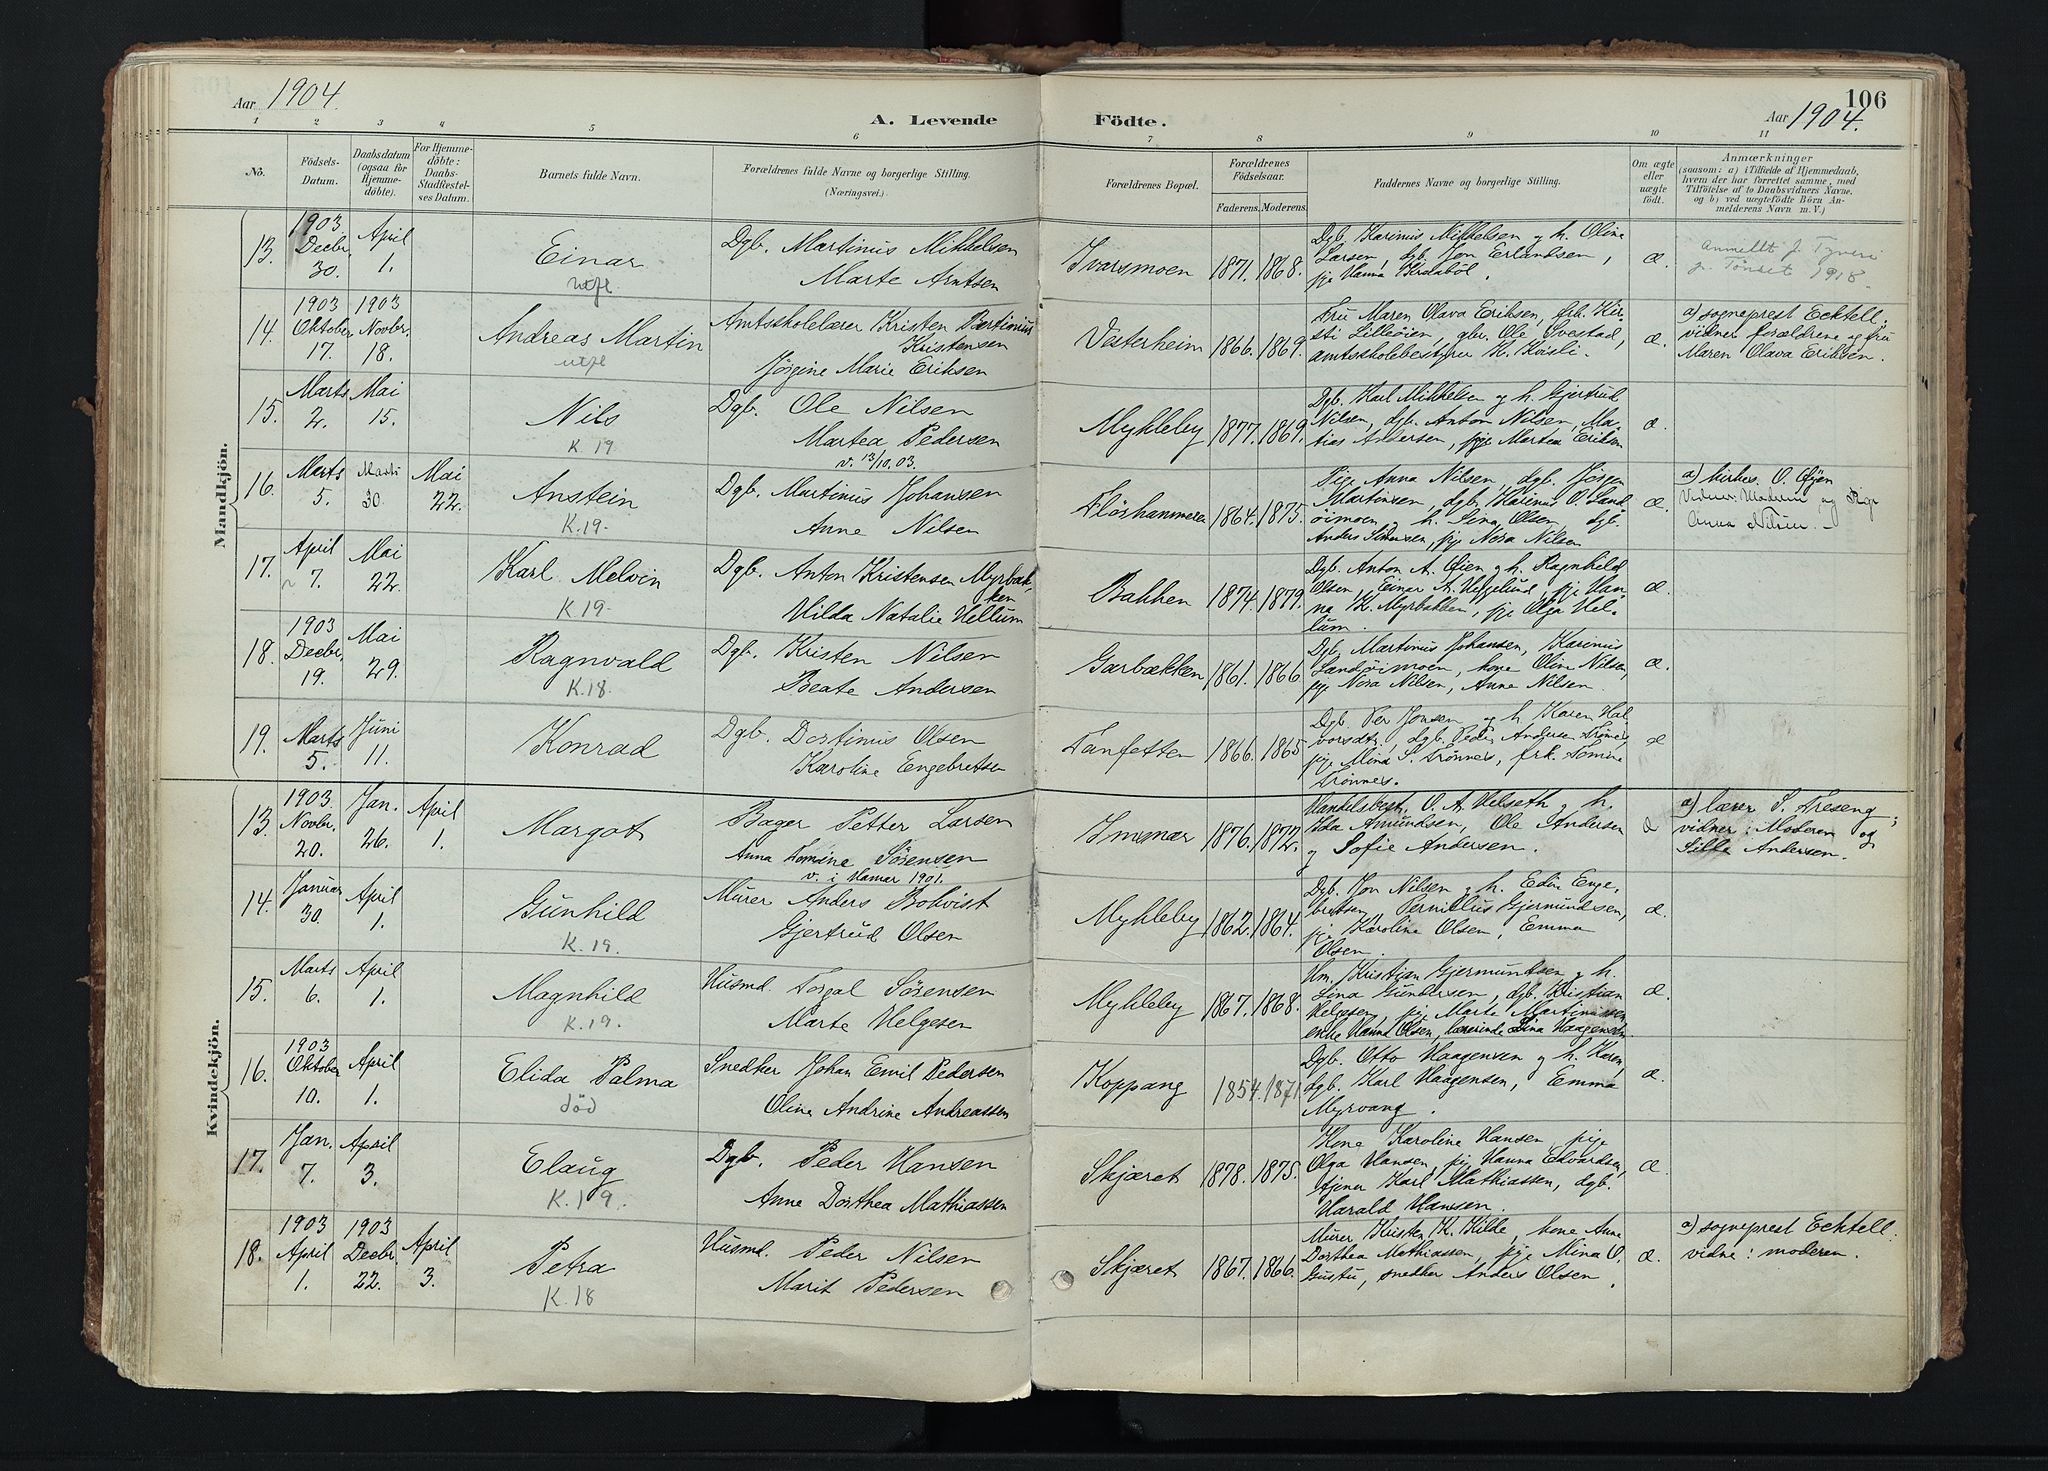 Aar 1904.
A. Levende
Födte.
106
Aar 1904.
1 2 3 4 5 6 7 8 9 10 11
No.
Födsels-
Datum.
Daabsdatum
(ogsaa for
Hjemme-
döbte).
For Hjemme-
döbte:
Daabs-
Stadfæstel-
ses Datum.
Barnets fulde Navn.
Forældrenes fulde Navne og borgerlige Stilling.
(Næringsvei.)
Forældrenes Bopæl.
Forældrenes
Födselsaar.
Faderens. Moderens.
Faddernes Navne og borgerlige Stilling.
Om ægte
eller
uægte
födt.
Anmærkninger
(saasom: a) i Tilfælde af Hjemmedaab,
hvem der har forrettet samme, med
Tilföielse af to Daabsvidners Navne.
og b) ved uægtefödte Börn An-
melderens Navn m. V.)
Mandkjön.
13.
1903
Decbr.
30.
April
1.
Einar
utfl.
Dgb. Martinus Mikkelsen
Marte Arntsen
Ivarsmoen
1871. 1868.
Dgb. Karinus Mikkelsen og h. Olina
Larsen, dgb. Jon Erlandsen,
pje Hanna
æ.
anmeldt f. Tyveri
Tönset 1918.
14.
1903
Oktober
17.
1903
Novbr.
18.
Andreas Martin
utfl
Amtsskolelærer Kristen Bertinius
Kristensen
Jörgine Marie Eriksen
Vesterheim
1866. 1869.
Fru Maren Olava Eriksen, frk. Kir-
sti Lilleöien, gbr. Ole Sverstad,
amtsskolebestyrer K. Kvisli.
æ.
a) sogneprest Ecktell.
vidner forældrene og fru
Maren Olava Eriksen.
15.
Marts
2.
Mai
15.
Nils
K 19
Dgb. Ole Nilsen
Martea Pedersen
v. 13/10.03.
Mykleby
1877. 1869.
Dgb. Karl Mikkelsen og h. Gjertrud
Nilsen, dgb. Anton Nilsen, Ma-
tias Andersen, pije Martea Eriksen
æ.
16.
Marts
5.
Marts
30
Mai
22.
Anstein
K.19.
Dgb. Martinus Johansen
Anne Nilsen
Flörhammeren
1864. 1875.
Pige Anna Nilsen, dgb. Jörgen
Martinsen, dgb. Karinus O. Land-
öimoen og h. Lina Olsen, dgb.
Anders Simensen, pje Nora Nilsen
æ.
a) kirkes. O. Öyen
Vidner: Moderen og Pige
Anna Nilsen.
17.
April
7.
Mai
22.
Karl Melvin
K 19.
Dgb. Anton Kristensen Myrbæk-
ken
Hilda Natalie Hellum
Bakken
1874. 1879.
Dgb. Anton A. Öien og h. Ragnhild
Olsen, Einar A. Hegelund, pje Han-
na K. Myrbakken, pje Olga Hel-
lum.
æ.
18.
1903
Decbr.
19.
Mai
29.
Ragnvald
K.18.
Dgb. Kristen Nilsen
Beate Andersen
Garbækken
1861. 1866.
Dgb. Martinus Johansen, Karinus
Landöimoen, kone Olina Nilsen,
pje Nora Nilsen, Anne Nilsen.
æ.
19.
Marts
5.
Juni
11.
Konrad
Dgb. Dortinus Olsen
Karoline Engebretsen
Fanfetten
1866. 1865
Dgb. Per Jonsen og h. Karen Hal-
vorsdtr., dgb. Peder Andersen Trönnes,
pje Mina S. Trönnes, frk. Tomine
Trönnes.
æ
Kvindekjön.
13.
1903
Novbr.
20.
Jan.
26.
April
1.
Margot
Bager Petter Larsen
Anna Tomine Sörensen
v. i Hamar 1901.
Immar
1876. 1872.
Handelsbest. O. A. Helseth og h.
Ida Amundsen, Ole Andersen
og Sofie Andersen.
æ
a) lærer S. Treseng;
vidner: Moderen og
Andersen.
14.
Januar
30.
April
1.
Gunhild
K. 19.
Murer Anders Bokvist
Gjertrud Olsen
Mykleby
1862. 1864.
Dgb. Jon Nilsen og h. Edin Enge-
bretsen, Pernillus Gjermundsen,
pje Karoline Olsen, Emma
Olsen.
æ.
15.
Marts
6.
April
1.
Magnhild
K. 19.
Husmd. Torgal Sörensen
Marte Helgesen
Mykleby
1867. 1868.
Hm. Kristian Gjermundsen og h.
Lina Gundersen, dgb. Kristian
Helgesen, pje Marte Martinussen
enke Hanna Olsen, lærerinde Lina Haagensen
æ.
16.
1903
Oktober
10.
April
1.
Elida Palma
död
Snedker Johan Emil Pedersen
Oline Andrine Andreassen
Koppang
1854. 1871.
Dgb. Otto Haagensen og h. Karen,
dgb. Karl Haagensen, Emma
Myrvang.
æ.
17.
Jan.
7.
April
3.
Elaug
K. 19.
Dgb. Peder Hansen
Anne Dorthea Mathiassen
Skjæret
1878. 1875.
Kone Karoline Hansen, pije
Olga Hansen, pje Hanna Edvardsen,
tjener Karl Mathiassen, dgb.
Harald Hansen.
æ.
18.
1903
April
1.
1903
Decbr.
22.
April
3.
Petra
K. 18
Husmd. Peder Nilsen
Marit Pedersen
Skjæret
1867. 1866.
Murer Kristen K. Kilde, kone Anne
Dorthea Mathiassen, pje Mina O.
Gustu, snedker Anders Olsen.
æ.
a) sogneprest Ecktell.
vidne: moderen.